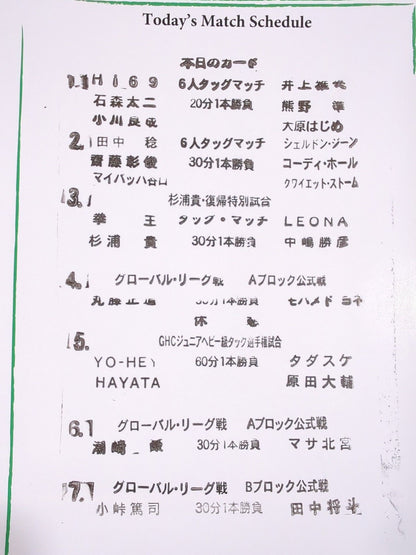 Today's Match Schedule
本日のカード
1. Hi69 6人タッグマッチ 井上雅央
石森太二 20分1本勝負 熊野 準
小川良成 大原はじめ
2. 田中 稔 6人タッグマッチ シェルドン・ジーン
齋藤彰俊 30分1本勝負 コーディ・ホール
マイバッハ谷口 クワイエット・ストーム
3. 杉浦貴・復帰特別試合
拳 王 タッグ・マッチ LEONA
杉浦 貴 30分1本勝負 中嶋勝彦
4. グローバル・リーグ戦 Aブロック公式戦
丸藤正道 30分1本勝負 モハメド ヨネ
休 憩
5. GHCジュニアヘビー級タッグ選手権試合
YO-HEY 60分1本勝負 タダスケ
HAYATA 原田大輔
6. グローバル・リーグ戦 Aブロック公式戦
潮崎 豪 30分1本勝負 マサ北宮
7. グローバル・リーグ戦 Bブロック公式戦
小峠篤司 30分1本勝負 田中将斗